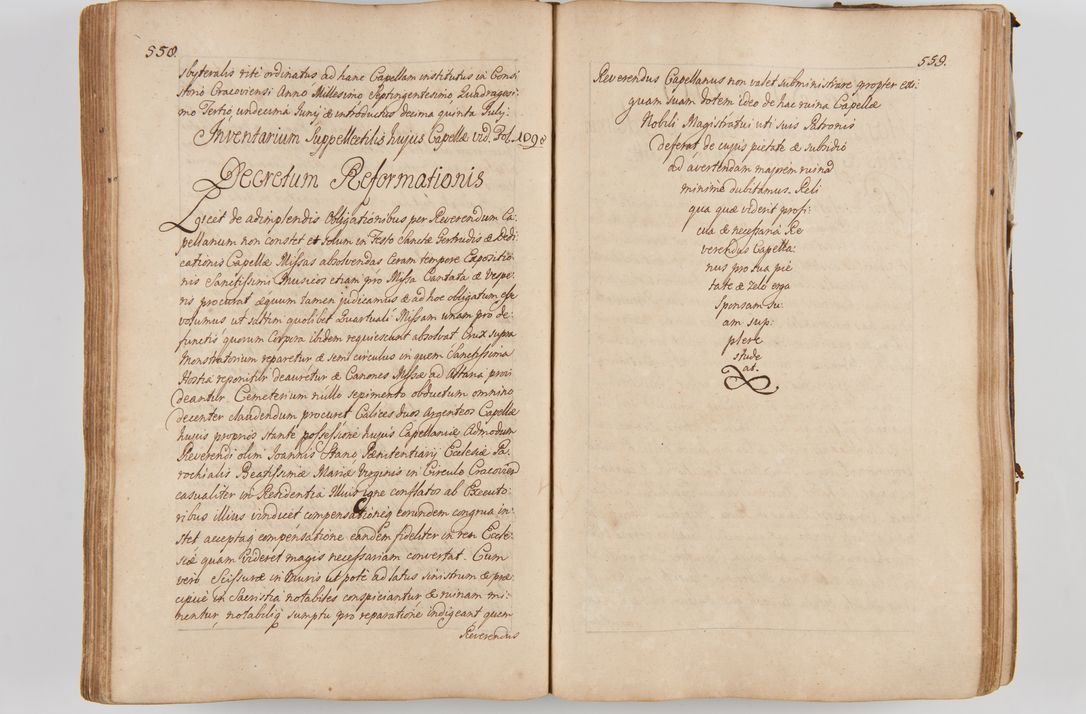 558.
sbyteralis rite ordinatus ad hanc Capellam institutus in Consi
storio Cracoviensi Anno Millesimo Septingentesimo Quadragesi-
mo Tertio undecima Junij & introductus decima quinta Julij.
Inventarium Suppellectilis hujus Capellæ vid. Fol.
Decretum Reformationis
Licet de adimplendis Obligationibus per Reverendum Ca-
pellanum non constet et solum in Festo Sanctæ Gertrudis & Dedi
cationis Capellæ Missas absolvendas Ceram tempore Expositio
nis Sanctissimi Musicos etiam pro Missa Cantata & Vespe-
ris procurat æquum tamen judicamus & ad hoc obligatum esse
volumus ut saltim quolibet Quartuali Missam unam pro de-
functis quorum Corpora ibidem requiescunt absolvat Crux supra
Monstratorium reparetur & semi circulus in quem Sanctissima
Hostia reponitur deauretur & Canones Missæ ad Altaria provi
deantur. Cemeterium nullo sepimento obductum omnino
decenter claudendum procuret Calices duos Argenteos Capellæ
hujus proprios stante possessione hujus Capellaniæ Admodum
Reverendi olim Joannis Stano Pænitentiarij Ecclesiæ Pa-
rochialis Beatissimæ Mariæ Virginis in Circulo Cracoviæ
casualiter in Residentia Illius igne conflatos ab Executo-
ribus illius vindicet compensationeq eorundem congrua in-
stet acceptaq compensatione eandem fideliter in rem Eccle-
siæ quam videret magis necessariam convertat. Cum
vero Scissuræ in Muris ut pote ad latus sinistrum & præ-
cipue in Sacristia notabiles conspiciantur & ruinam mi-
nentur, notabiliq sumptu pro reparatione indigeant quem
Reverendus
559.
Reverendus Capellanus non valet subministrare propter exi-
guam suam dotem ideo de hac ruina Capellæ
Nobili Magistratui uti suis Patronis
deferat de cujus pietate & subsidio
ad avertendam majorem ruinã
minime dubitamus. Reli
qua quæ viderit profi-
cua & necessaria Re
verendus Capella-
nus pro sua pie
tate & zelo erga
Sponsam su-
am sup-
plere
stude
at.